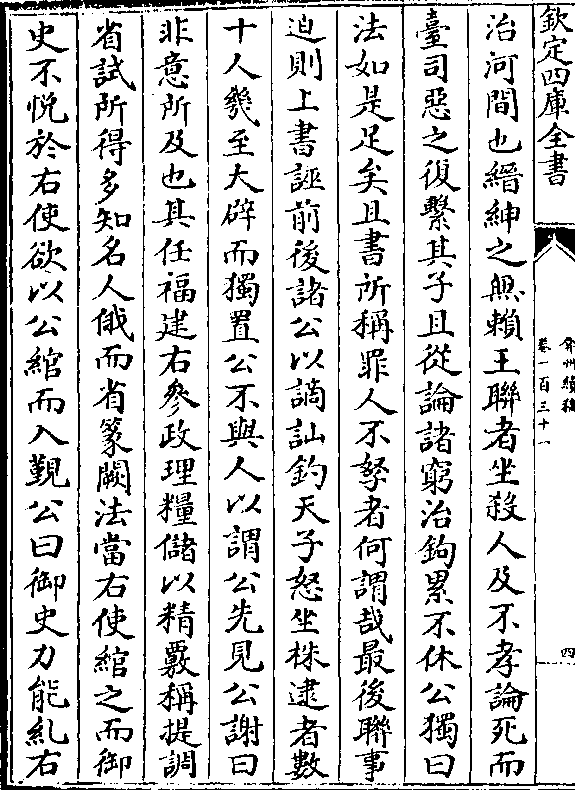 欽定四庫全書
弇州續稿
卷一百三十一
四
治河間也縉紳之無賴王聯者坐殺人及不孝論死而
臺司惡之復繫其子且從論諸窮治鉤累不休公獨曰
法如是足矣且書所稱罪人不孥者何謂哉最後聯事
迫則上書誣前後諸公以謫訕釣天子怒坐株逮者數
十人幾至大辟而獨置公不與人以謂公先見公謝曰
非意所及也其任福建右參政理糧儲以精覈稱提調
省試所得多知名人俄而省篆闕法當右使綰之而御
史不悅於右使欲以公綰而入覲公曰御史力能糺右